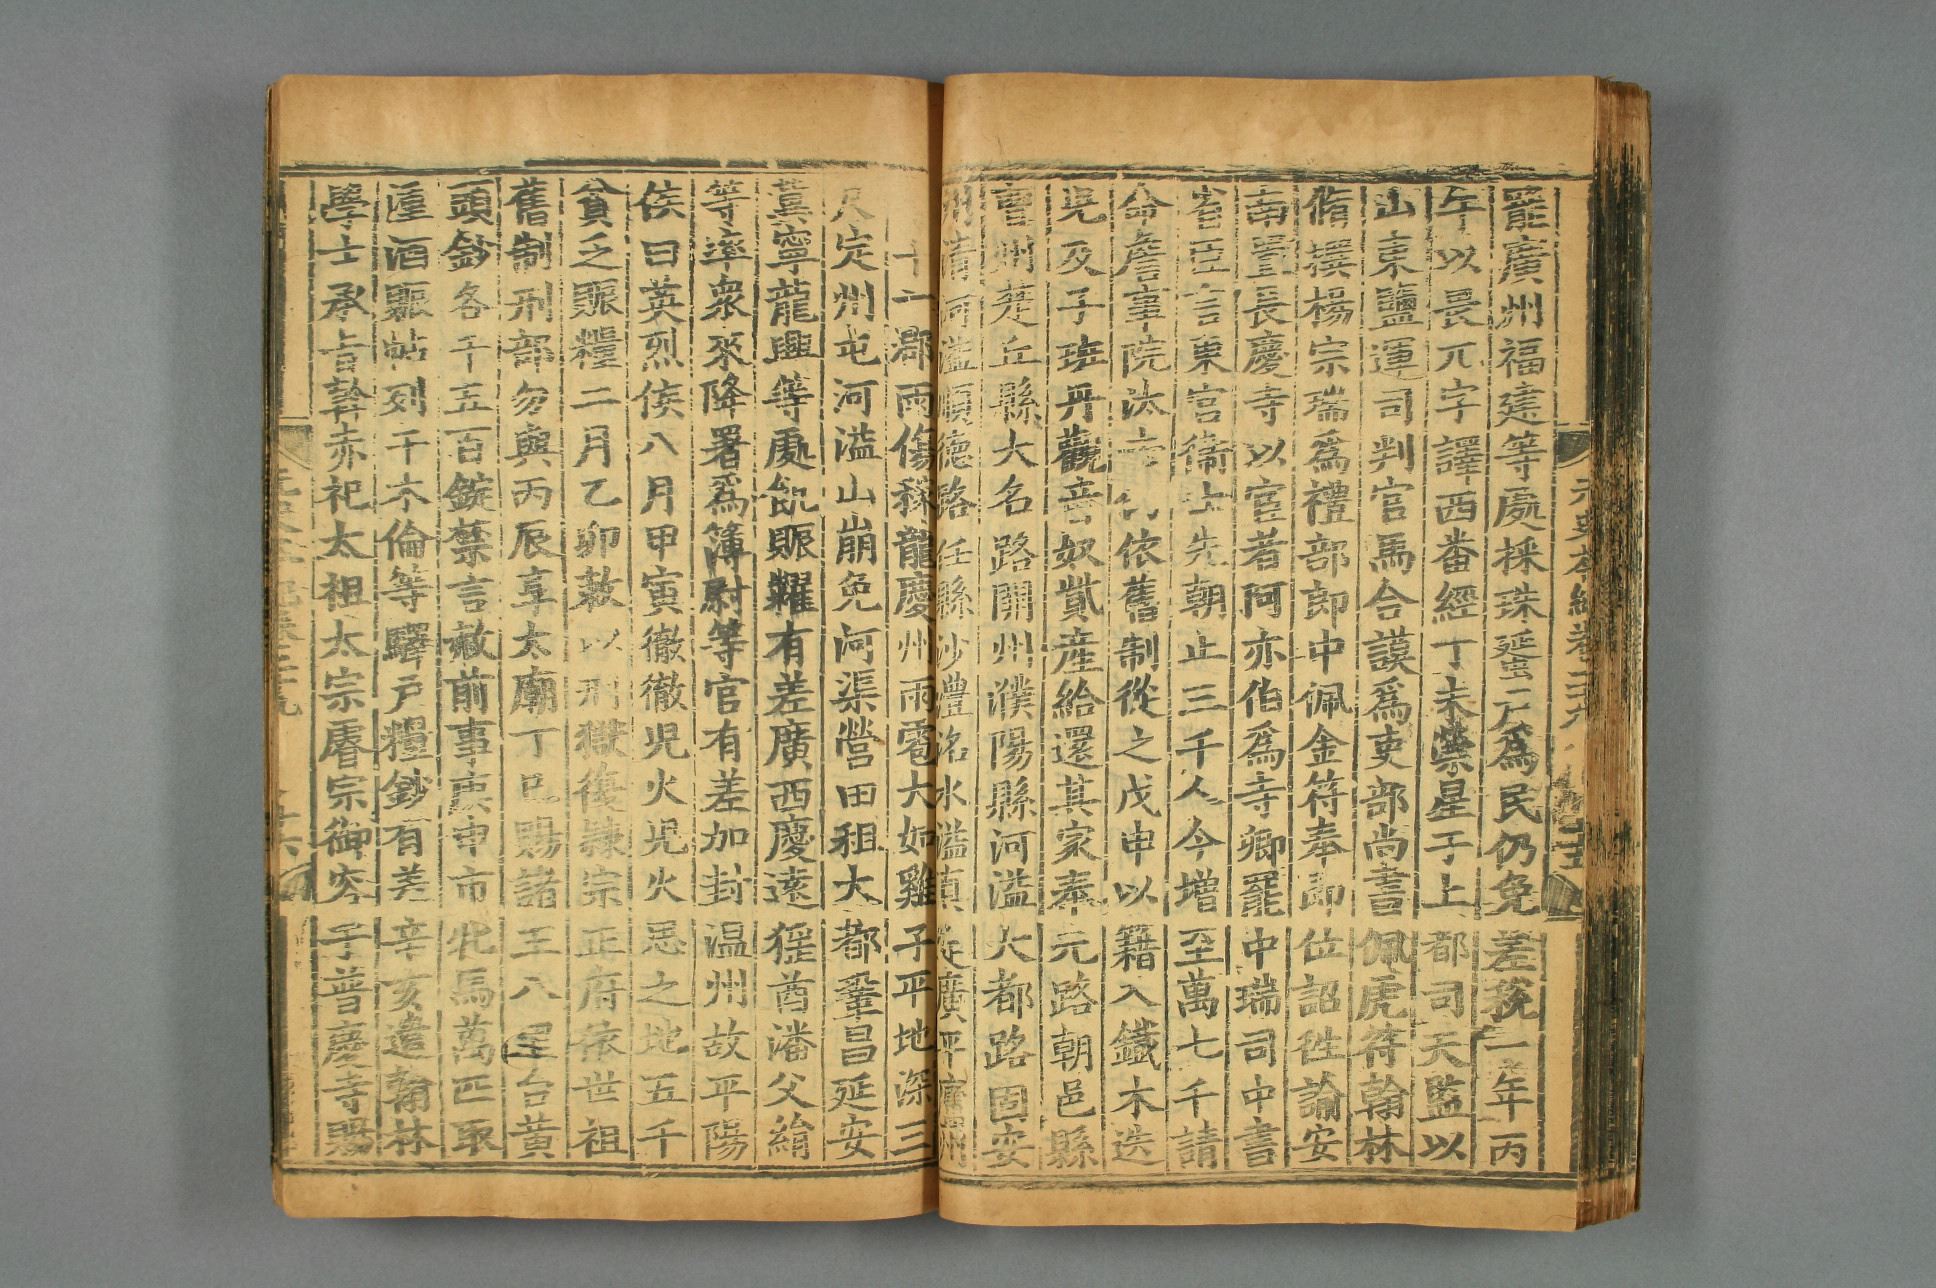 元史本紀卷二十九
罷廣州福建等處採珠蜑戶為民仍免差稅一年丙
午以畏兀字譯西番經丁未熒星于上都司天監以
山東鹽運司判官馬合謨為吏部尚書佩虎符翰林
脩撰楊宗瑞為禮部郎中佩金符奉即位詔往諭安
南置長慶寺以宦者阿亦伯為寺卿罷中瑞司中書
省臣言東宮衛士先朝止三千人今增至萬七千請
命詹事院汰去依舊制從之戊申以籍入鐵木迭
兒及子班丹觀音奴貲產給還其家奉元路朝邑縣
曹州楚丘縣大名路開州濮陽縣河溢大都路固安
州清河溢順德路任縣沙灃洺水溢真定廣平廬州
十一郡雨傷稼龍慶州雨雹大如雞子平地深三
尺定州屯河溢山崩免河渠營田租大都鞏昌延安
冀寧龍興等處飢賑糶有差廣西慶遠猺酋潘父絹
等率衆來降署為簿尉等官有差加封溫州故平陽
侯曰英烈侯八月甲寅徹徹兒火兒火思之地五千
貧乏賑糧二月乙卯敕以刑獄復隸宗正府依世祖
舊制刑部勿與丙辰享太廟丁巳賜諸王八里台黃
頭鈔各千五百錠禁言赦前事庚申市牝馬萬匹取
湩酒賑帖列干木倫等驛戶糧鈔有差辛亥遣翰林
學士承旨斡赤祀太祖太宗睿宗御容于普慶寺賜